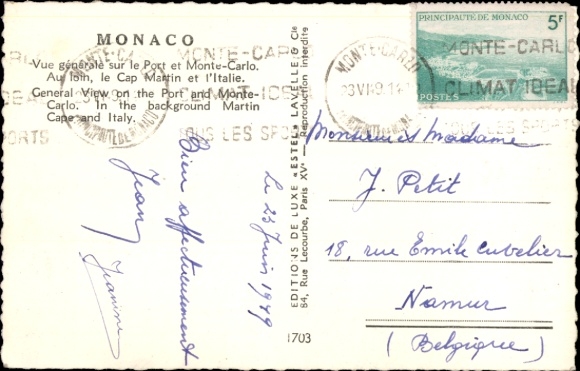 MONACO
Vue générale sur le Port et Monte-Carlo.
Au loin, le Cap Martin et l'Italie.
General View on the Port and Monte-
Carlo. In the background Martin
Cape and Italy.
Bien affectueusement
Jean
Jeanine
Le 23 Juin 1949
EDITIONS DE LUXE «ESTEL» LAVELLE & Cie
84, Rue Lecourbe, Paris XVe — Reproduction interdite
1703
PRINCIPAUTE DE MONACO
5F
POSTES
MONTE-CARLO
MONTE-CARLO
CLIMAT IDEAL
TOUS LES SPORTS
MONTE-CARLO
CLIMAT IDEAL
Monsieur et Madame
J. Petit
18, rue Emile Cuvelier
Namur
(Belgique)